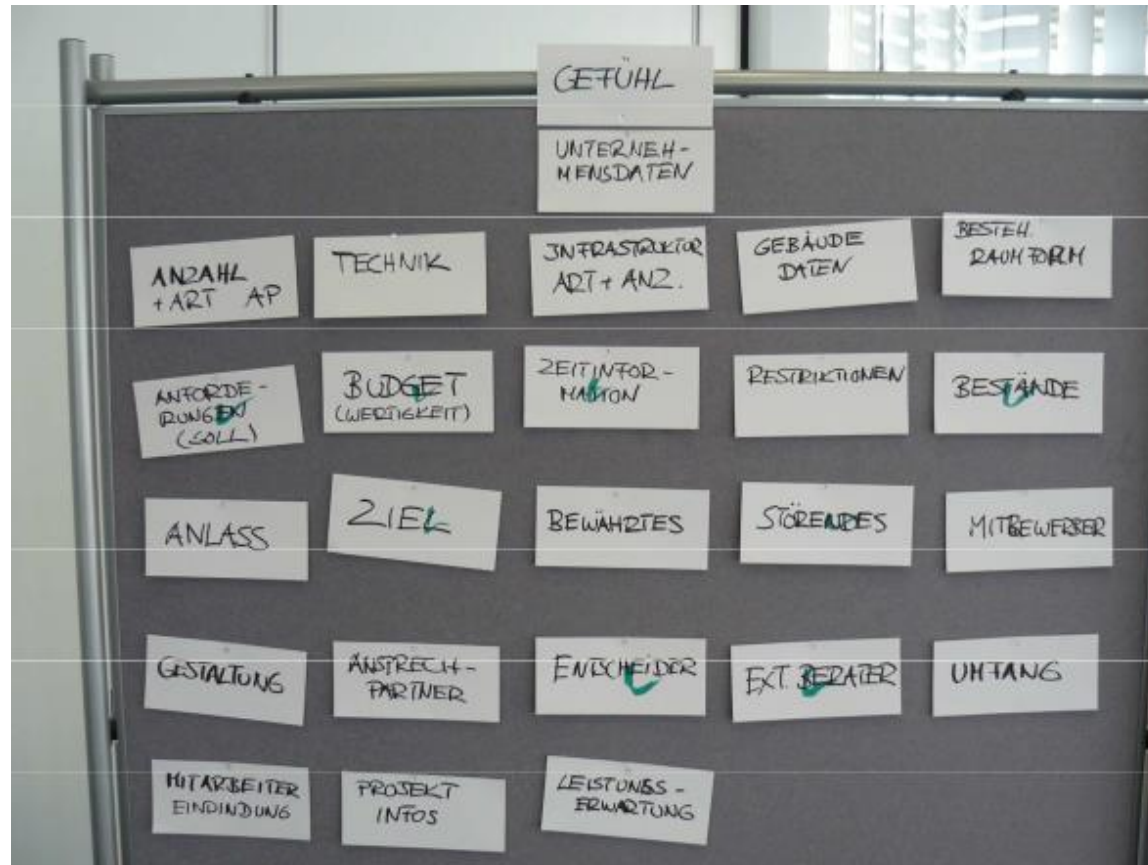 GEFÜHL
UNTERNEH-
MENSDATEN
ANZAHL
+ ART AP
TECHNIK
INFRASTRUKTUR
ART + ANZ.
GEBÄUDE
DATEN
BESTEH.
RAUMFORM
ANFORDE-
RUNGEN
(SOLL)
BUDGET
(WERTIGKEIT)
ZEITINFOR-
MATION
RESTRIKTIONEN
BESTÄNDE
ANLASS
ZIEL
BEWÄHRTES
STÖRENDES
MITBEWERBER
GESTALTUNG
ANSPRECH-
PARTNER
ENTSCHEIDER
EXT. BERATER
UMFANG
MITARBEITER
EINDINDUNG
PROJEKT
INFOS
LEISTUNGS-
ERWARTUNG